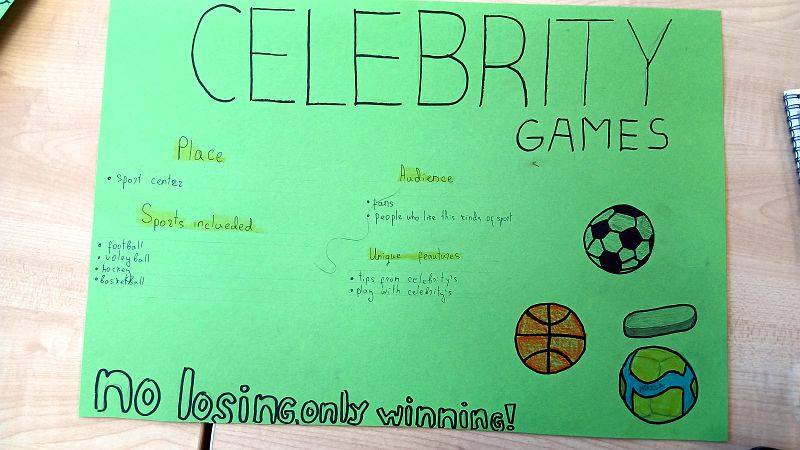 CELEBRITY
GAMES
Place
• sport center
Sports inclueded
• football
• voleyball
• hockey
• basketball
Audience
• fans
• people who like this kinds of sport
Unique feautures
• tips from celebrity's
• play with celebrity's
no losing, only winning!